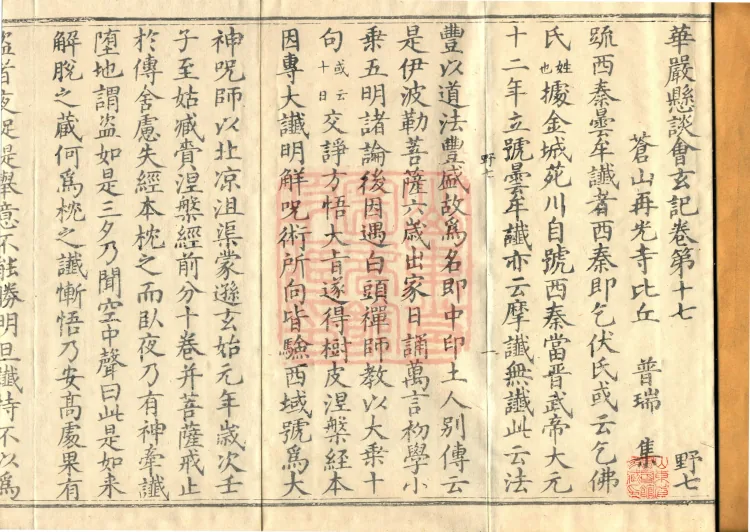 華嚴懸談會玄記卷第十七 野七
蒼山再光寺比丘 普瑞 集
䟽西秦曇牟讖者西秦即乞伏氏或云乞佛
氏姓也據金城苑川自號西秦當晋武帝大元
十二年立號曇牟讖亦云摩讖無讖此云法
野七 一
豐以道法豐盛故爲名即中印土人别傳云
是伊波勒菩薩六歳出家日誦萬言初學小
乗五明諸論後因遇白頭禪師教以大乗十
句或云十日交諍方悟大旨遂得樹皮涅槃經本
因專大讖明解呪術所向皆驗西域號爲大
神呪師以北凉沮渠蒙遜玄始元年歳次壬
子至姑臧賷涅槃經前分十卷并菩薩戒止
於傳舍慮失經本枕之而臥夜乃有神牽讖
堕地謂盗如是三夕乃聞空中聲曰此是如来
解脫之蔵何爲枕之讖慚悟乃安髙處果有
盗者夜捉是舉意不能勝明旦讖持不以爲